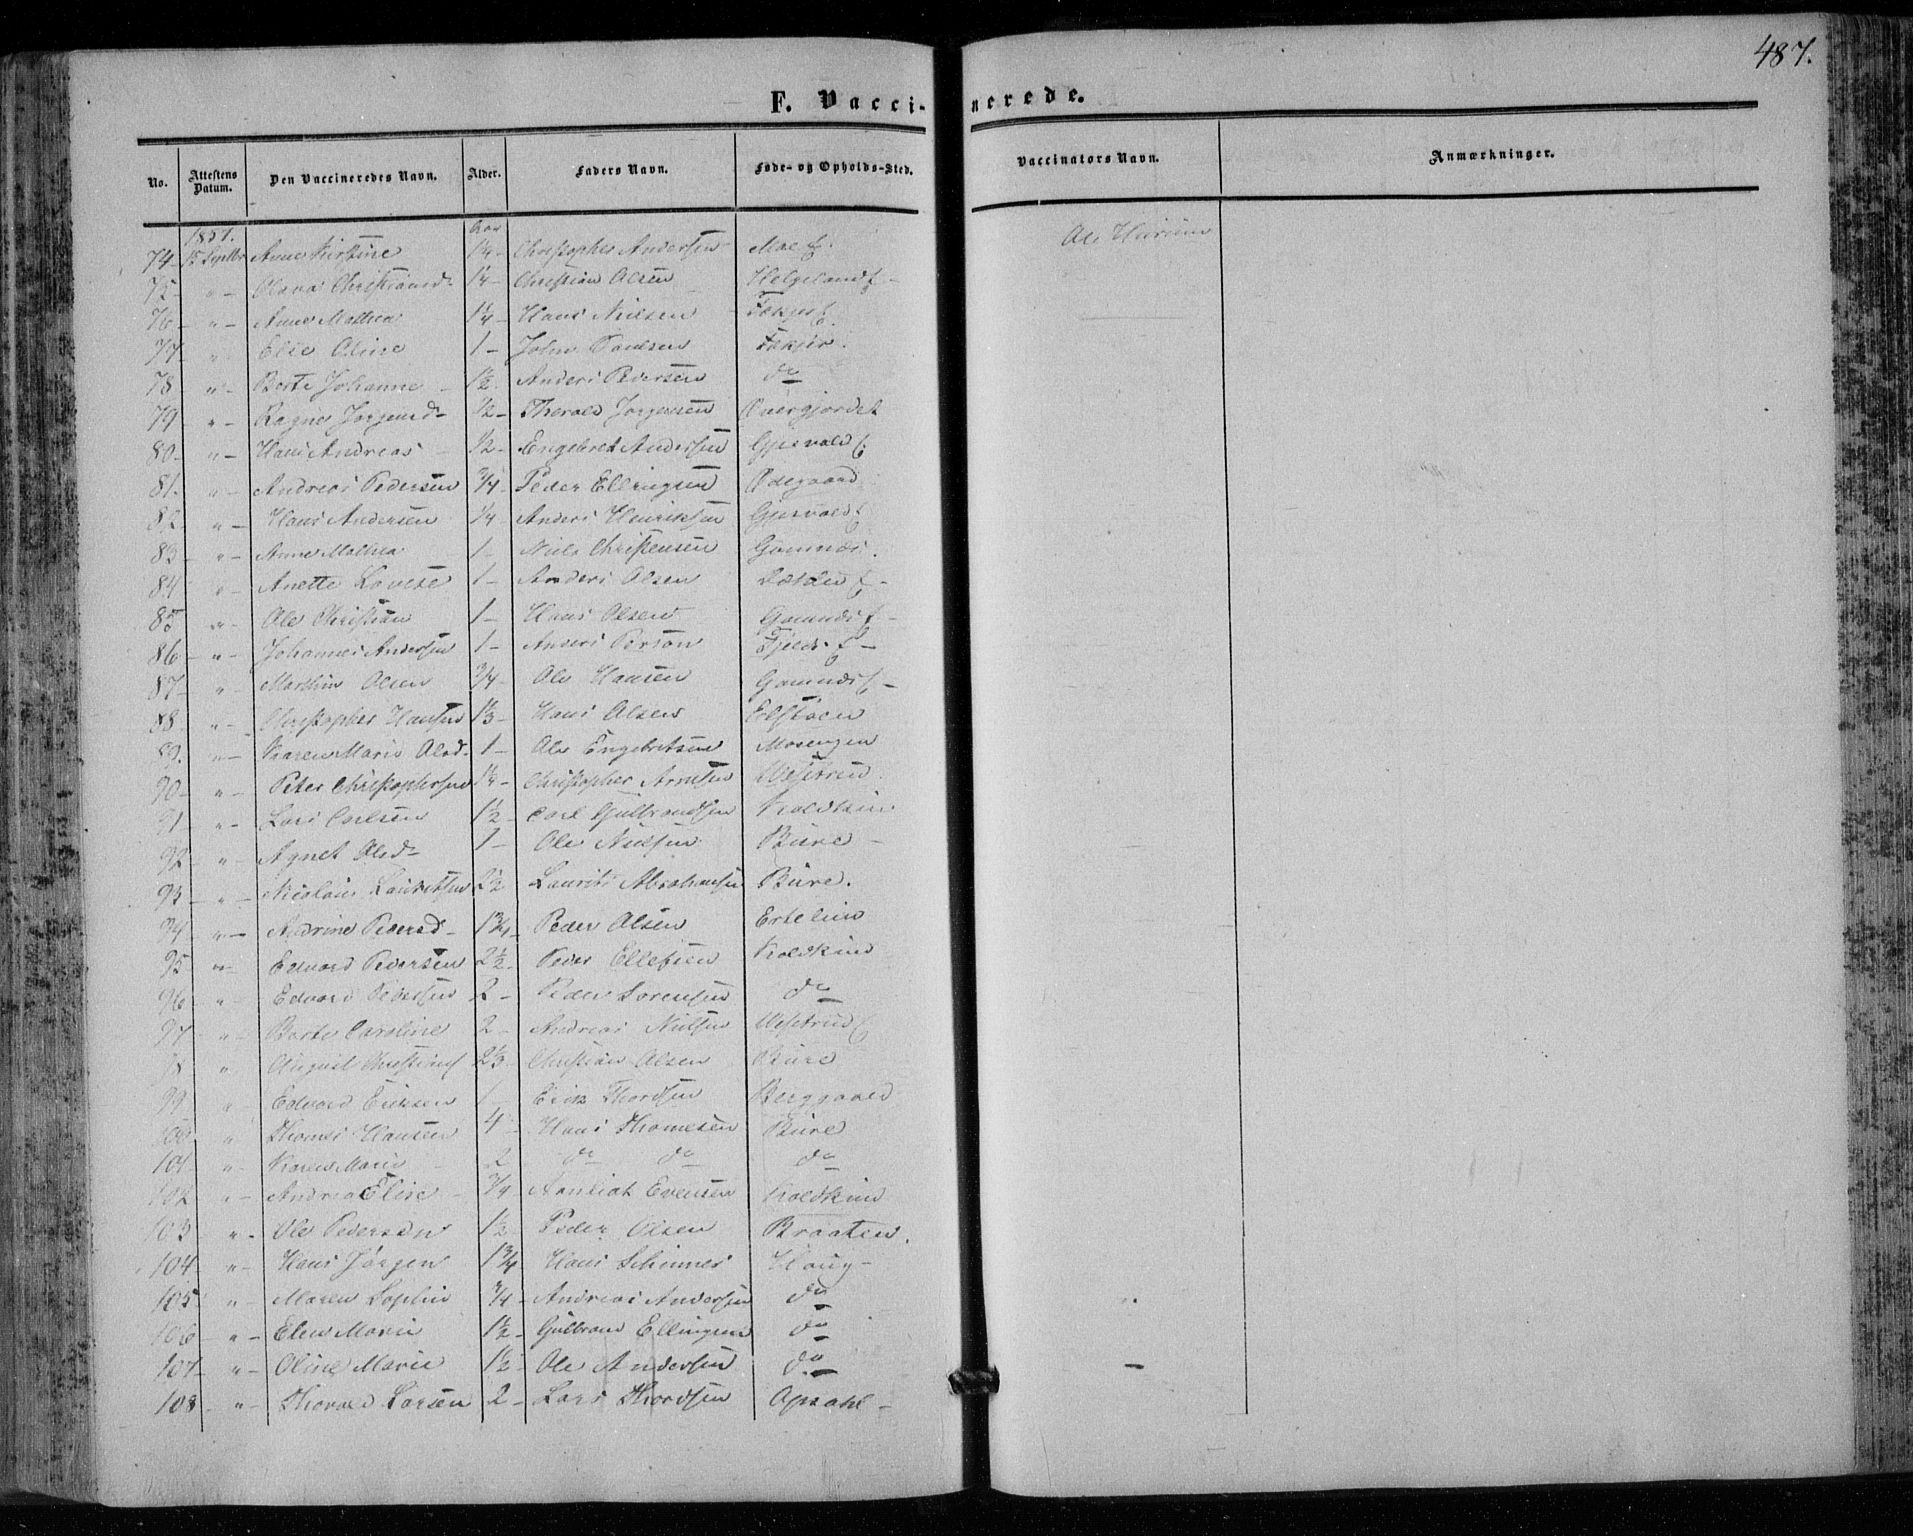 487.
F. Vaccinerede.
No. Attestens Datum. Den Vaccineredes Navn. Alder. Faders Navn. Føde- og Opholds-Sted. Vaccinators Navn. Anmærkninger.
1857. Aar
74 - 15 Septbr Anne Kirstine 1¼ - Christopher Andersen Moe Ole
75 - " - Christiansd. 1¼ - Christian Olsen Helgeland -
76 - " - Anne Mathea 1¼ - Hans Nielsen
77 - " Elie Oline 1 - John Paulsen
78 " - Berte Johanne - 1½ - Anders Pedersen do
79 " - Ragne Jørgensd - ½ - Thorvald Jørgensen
80 - " - Hans Andreas - ½ - Engebret Andersen
81. " - Andreas Pedersen ¾ - Peder Ellingsen Ødegaard
82 " - Hans Andersen ¼ - Anders Henriksen
83 - " - Anne Mathea 1 - Niels Christensen
84 " - Anette Lovise 1 - Anders Olsen
85 " - Ole Christian 1 - Hans Olsen
86 - " - Johannes Andersen 1 - Anders
87 - " Olsen ¾ - Ole Hansen
88 - " - Christopher Hansen 1⅓ - Hans Olsen
89. " - Karen Marie Olsd. 1 - Ole Engebretsen Mosengen
90 - " - Peter Christophersen 1¼ - Christopher Arnesen
91 - " - Lars Carlsen 1½ - Carl Gulbrandsen Koldkin
92 - " - Agnet Olsd - 1 - Ole Nielsen Bure -
93 - " - Nicolai Lauritsen 2½ Laurits Abrahamsen Bure.
94 " - Andrine Pedersd - 1¾ - Peder Olsen Ertelin
95 " - Edvard Pedersen 2½ - Peder Ellefsen Koldkin
96 - " Edvard Pedersen 2 - Peder Sørensen do
97 " - Berte Caroline 2 - Andreas Nielsen
98 " August 2⅓ - Christian Olsen Bure
99 - " Edvard Eriksen 1 - Erik Thordsen Berggaard
100 " Thomes Hansen 4 - Hans Thomesen Bure
101 - " Karen Marie 2 do do do
102 " - Andrea Elise - ¾ - Evensen Koldkin
103 " - Ole Pedersen 1½ - Peder Olsen Braaten.
104 - " - Hans Jørgen 1¾ - Hans Haug -
105 " - Maren Sophie ¾ - Andreas Andersen do
106 - " - Elen Marie 1½ - Gulbran Ellingsen do
107 - " - Oline Marie 1½ - Ole Andersen do
108 - " - Thorvald Larsen 2 - Lars Thordsen Opsahl -